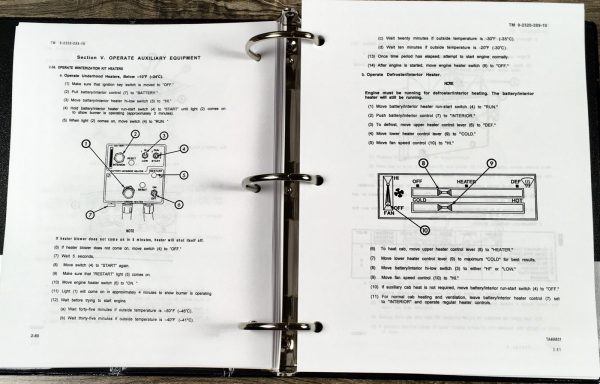 TM 9-2320-289-10
Section V. OPERATE AUXILIARY EQUIPMENT
OPERATE WINTERIZATION KIT HEATERS
a. Operate Underhood Heaters, Below -10°F
(1) Make sure that ignition key switch is moved to "OFF."
(2) Pull battery/interior control (7) to "BATTERY."
(3) Move battery/interior heater hi-low switch (3) to "HI."
(4) Hold battery/interior heater run-start switch (4) to START until light (2) comes on
to show burner is operating (approximately 3 minutes).
(5) When light (2) comes on, move switch (4) to "RUN."
1
2
3
4
5
6
7
RESET
HI
LOW
START
NOTE
If heater blower does not come on in 3 minutes, heater will shut itself off.
(6) If heater blower does not come on, move switch (4) to "OFF."
(7) Wait 5 seconds,
(8) Move switch (4) to "START" again.
(9) Make sure that "RESTART" light (5) comes on.
(10) Move engine heater switch (6) to "ON."
(11) Light (1) will come on in approximately 4 minutes to show burner is operating.
(12) Wait before trying to start engine.
(a) Wait forty-five minutes if outside temperature is -50°F (-46°C).
(b) Wait thirty-five minutes if outside temperature is -40°F (-41°C).
2-60
TM 9-2320-289-10
(c) Wait twenty minutes if outside temperature is -30°F (-35°C).
(d) Wait ten minutes if outside temperature is -20°F (-30°C).
(13) Once time period has elapsed, attempt to start engine normally.
(14) After engine is started, move engine heater switch (6) to "OFF."
b. Operate Defroster/Interior Heater.
NOTE
Engine must be running for defroster/interior heating. The battery/interior
heater will still be running.
(1) Move battery/interior heater run-start switch (4) to "RUN."
(2) Push battery/interior control (7) to "INTERIOR."
(3) To defrost, move upper heater control lever (8) to "DEF."
(4) Move lower heater control lever (9) to "COLD."
(5) Move fan speed control (10) to "HI."
8
9
HI
OFF
HEATER
DEF
COLD
HOT
OFF
FAN
10
(6) To heat cab, move upper heater control lever (8) to "HEATER."
(7) Move lower heater control lever (9) to maximum "COLD" for best results.
(8) Move battery/interior hi-low switch (3) to either "HI" or "LOW."
(9) Move fan speed control (10) to "HI."
(10) If auxiliary cab heat is not required, move battery/interior run-start switch (4) to "OFF."
(11) For normal cab heating and ventilation, leave battery/interior heater control (7) set
to "INTERIOR" and operate regular heater controls.
2-61